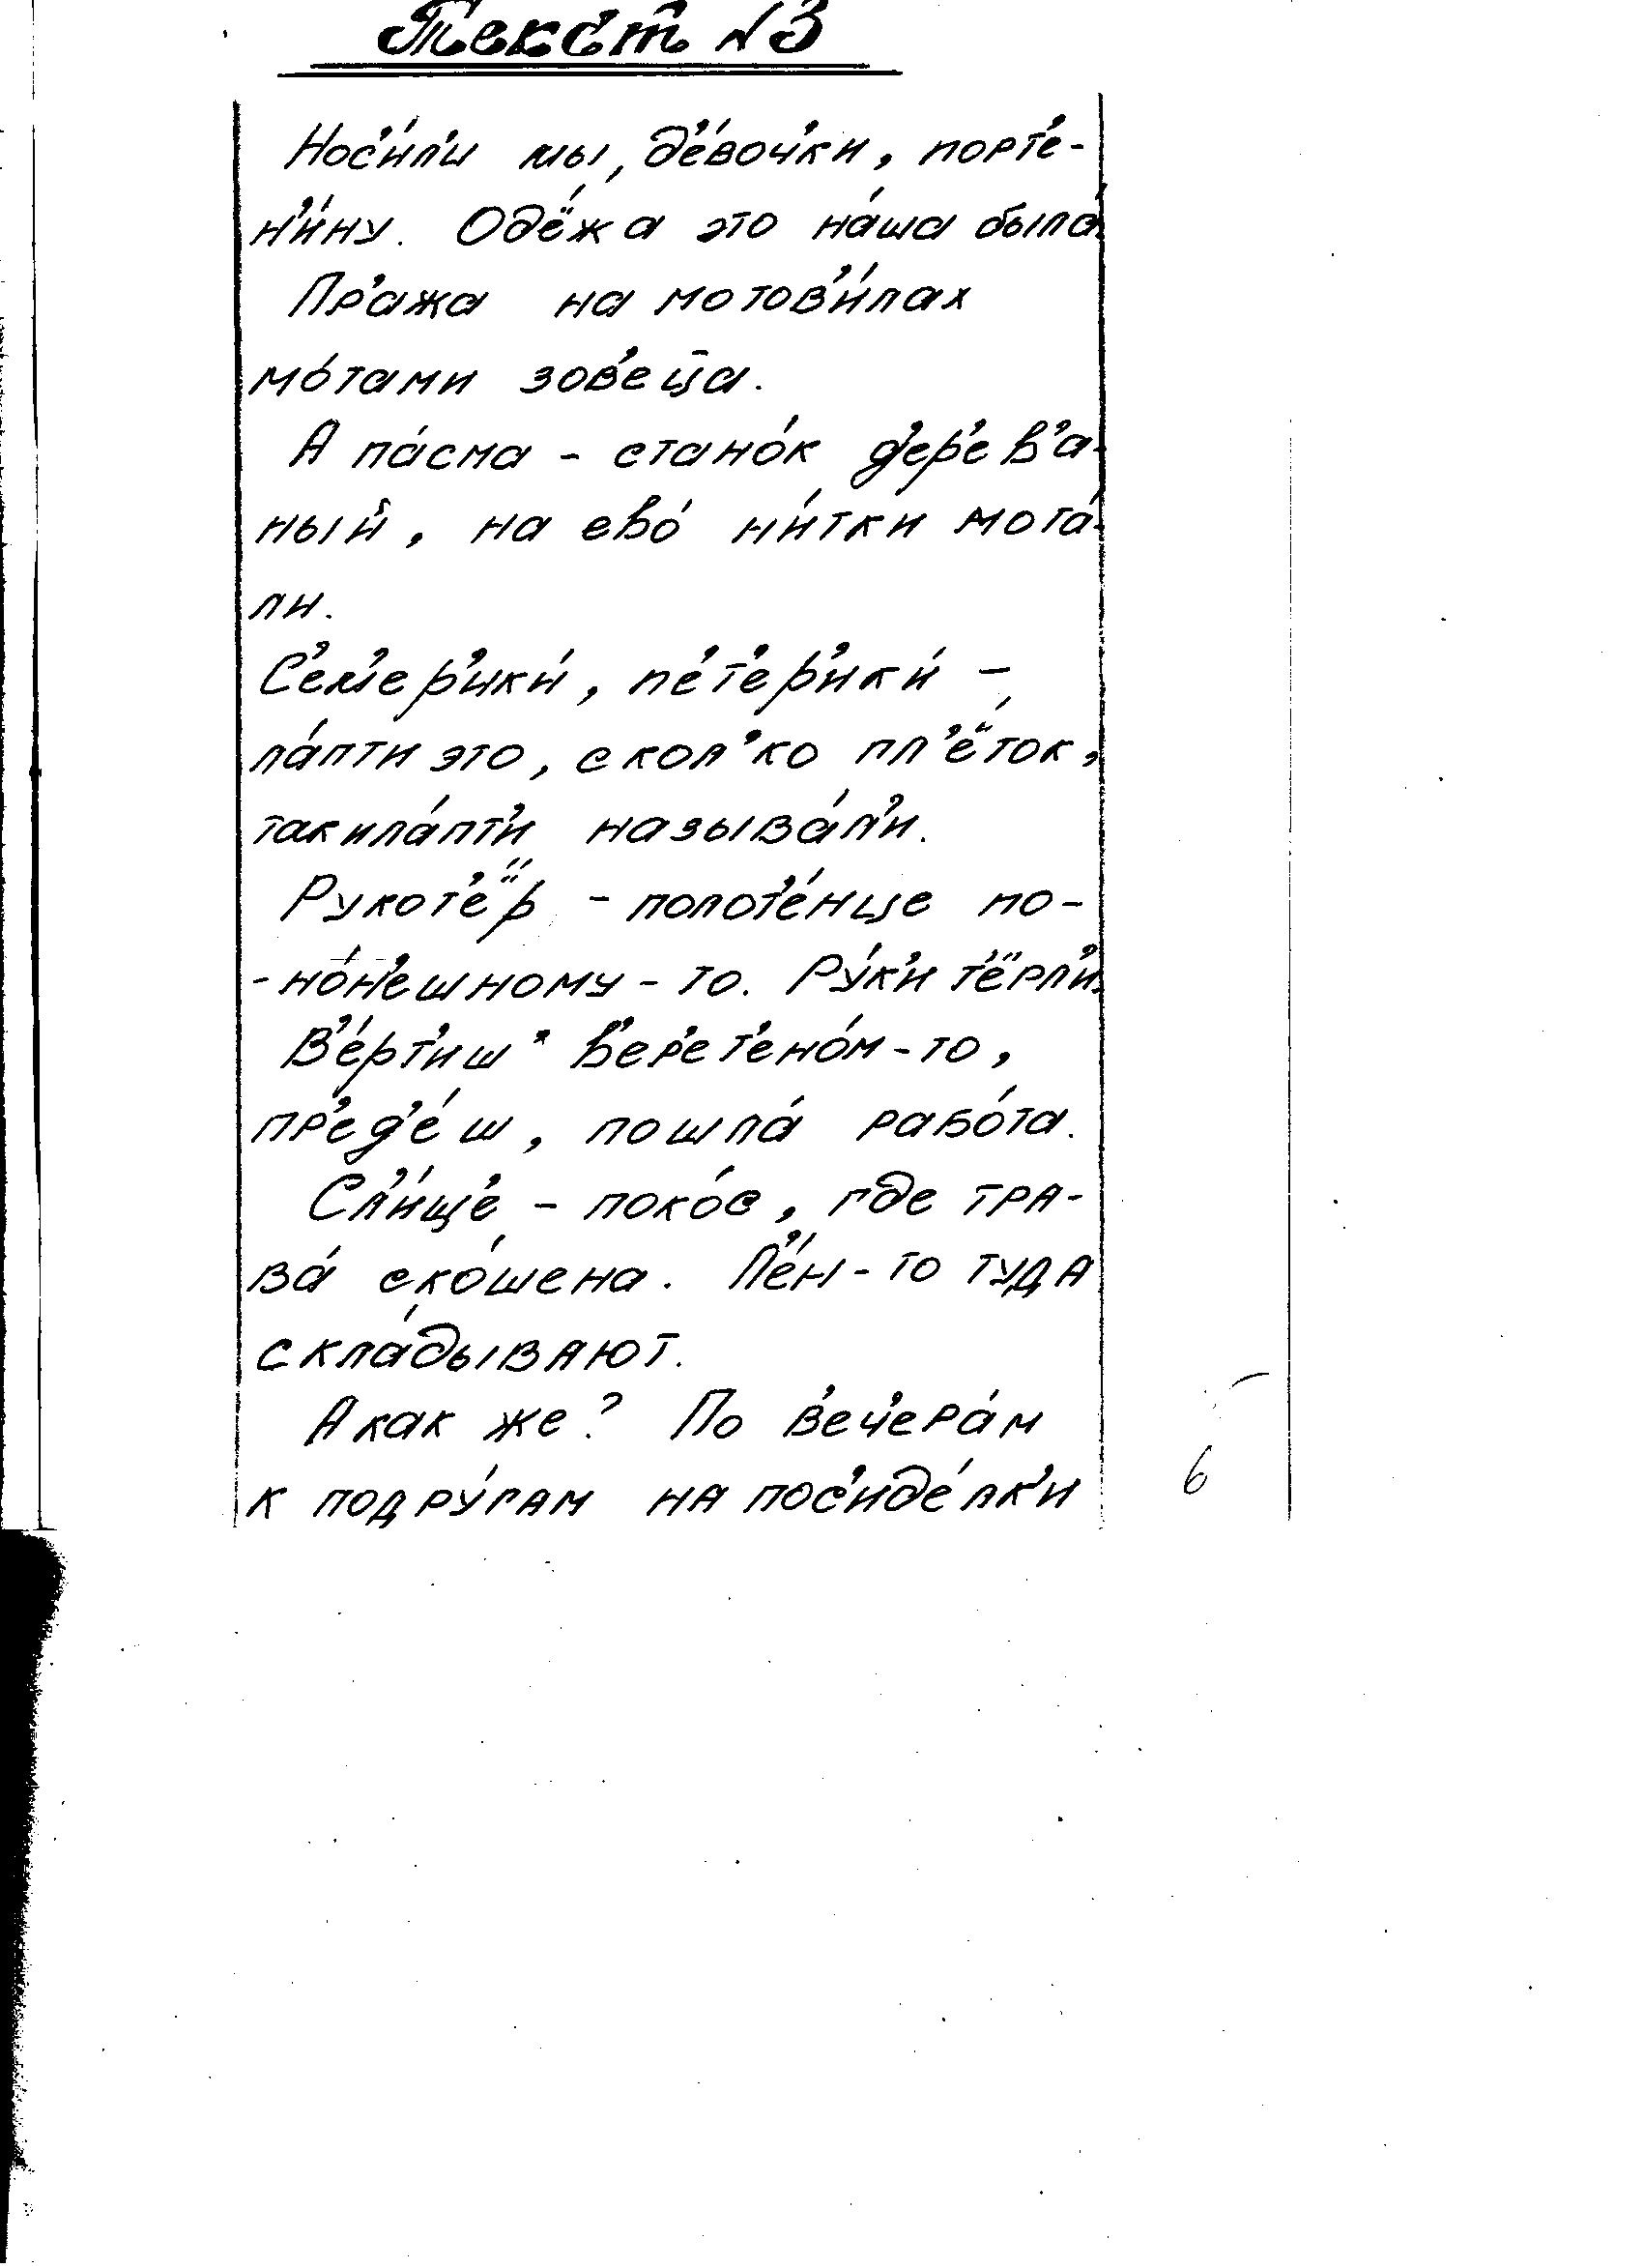 Текст №3
Нос'и́л'и мы, д'е́воч'ки, порт'е-
н'и́ну. Одё́жа это на́ша была́.
Пр'ажа на мотов'и́лах
мо́тами зов'ец̄а.
А па́сма - стано́к д'ер'ев'а-
ный, на ево́ ни́тки мота́-
ли.
С'ем'ер'ики́, п'ет'ер'ики́ -
ла́пти это, скол'ко пл'ё́ток,
так и ла́пт'и называ́л'и.
Рукот'ё́р - полот'е́нце по-
-но́н'ешному-то. Ру́к'и т'ёрл'и.
В'е́рт'иш' в'ер'ет'ено́м-то,
пр'ед'е́ш, пошла́ рабо́та.
Сл'и́щ'е - поко́с, где тра-
ва́ ско́шена. Л'ён-то туда
скла́дывают.
А как же? По в'еч'ера́м
к подру́гам на пос'иде́лк'и
6